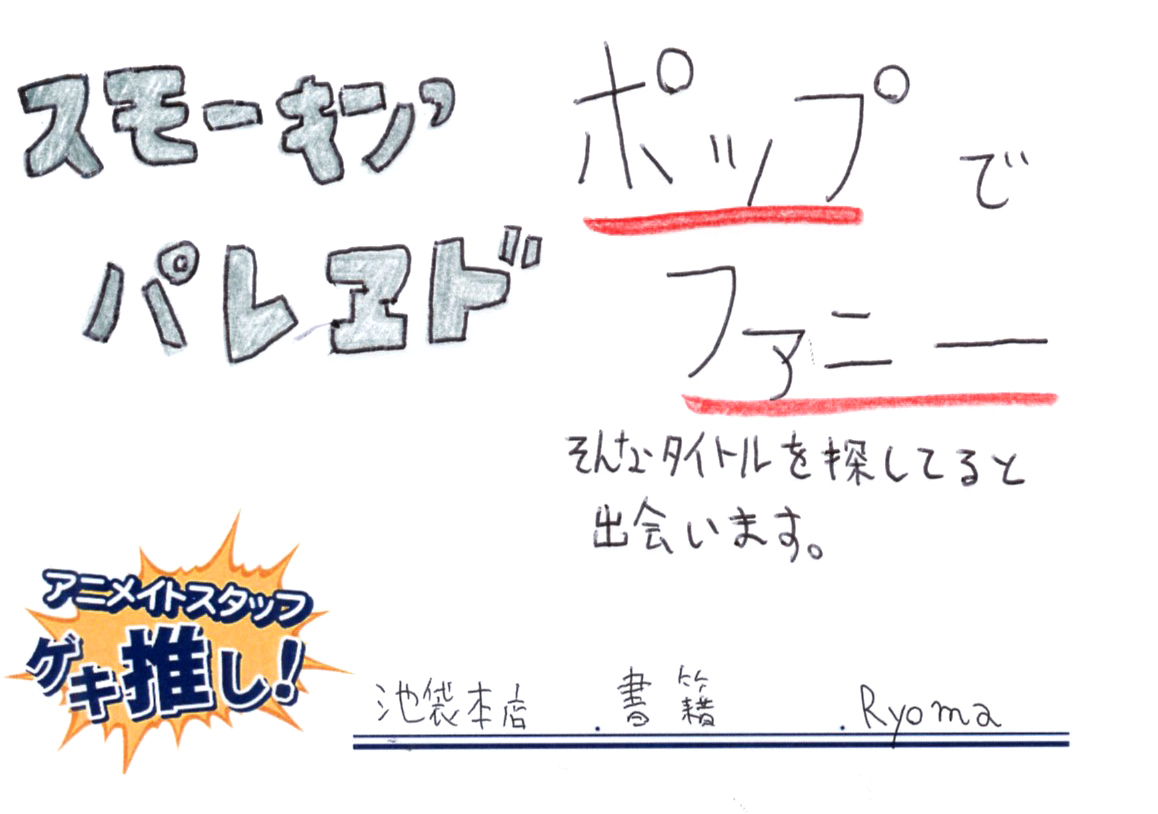 スモーキン'
パレヱド
ポップで
ファニー
そんなタイトルを探してると
出会います。
アニメイトスタッフ
ゲキ推し!
池袋本店・書籍・Ryoma